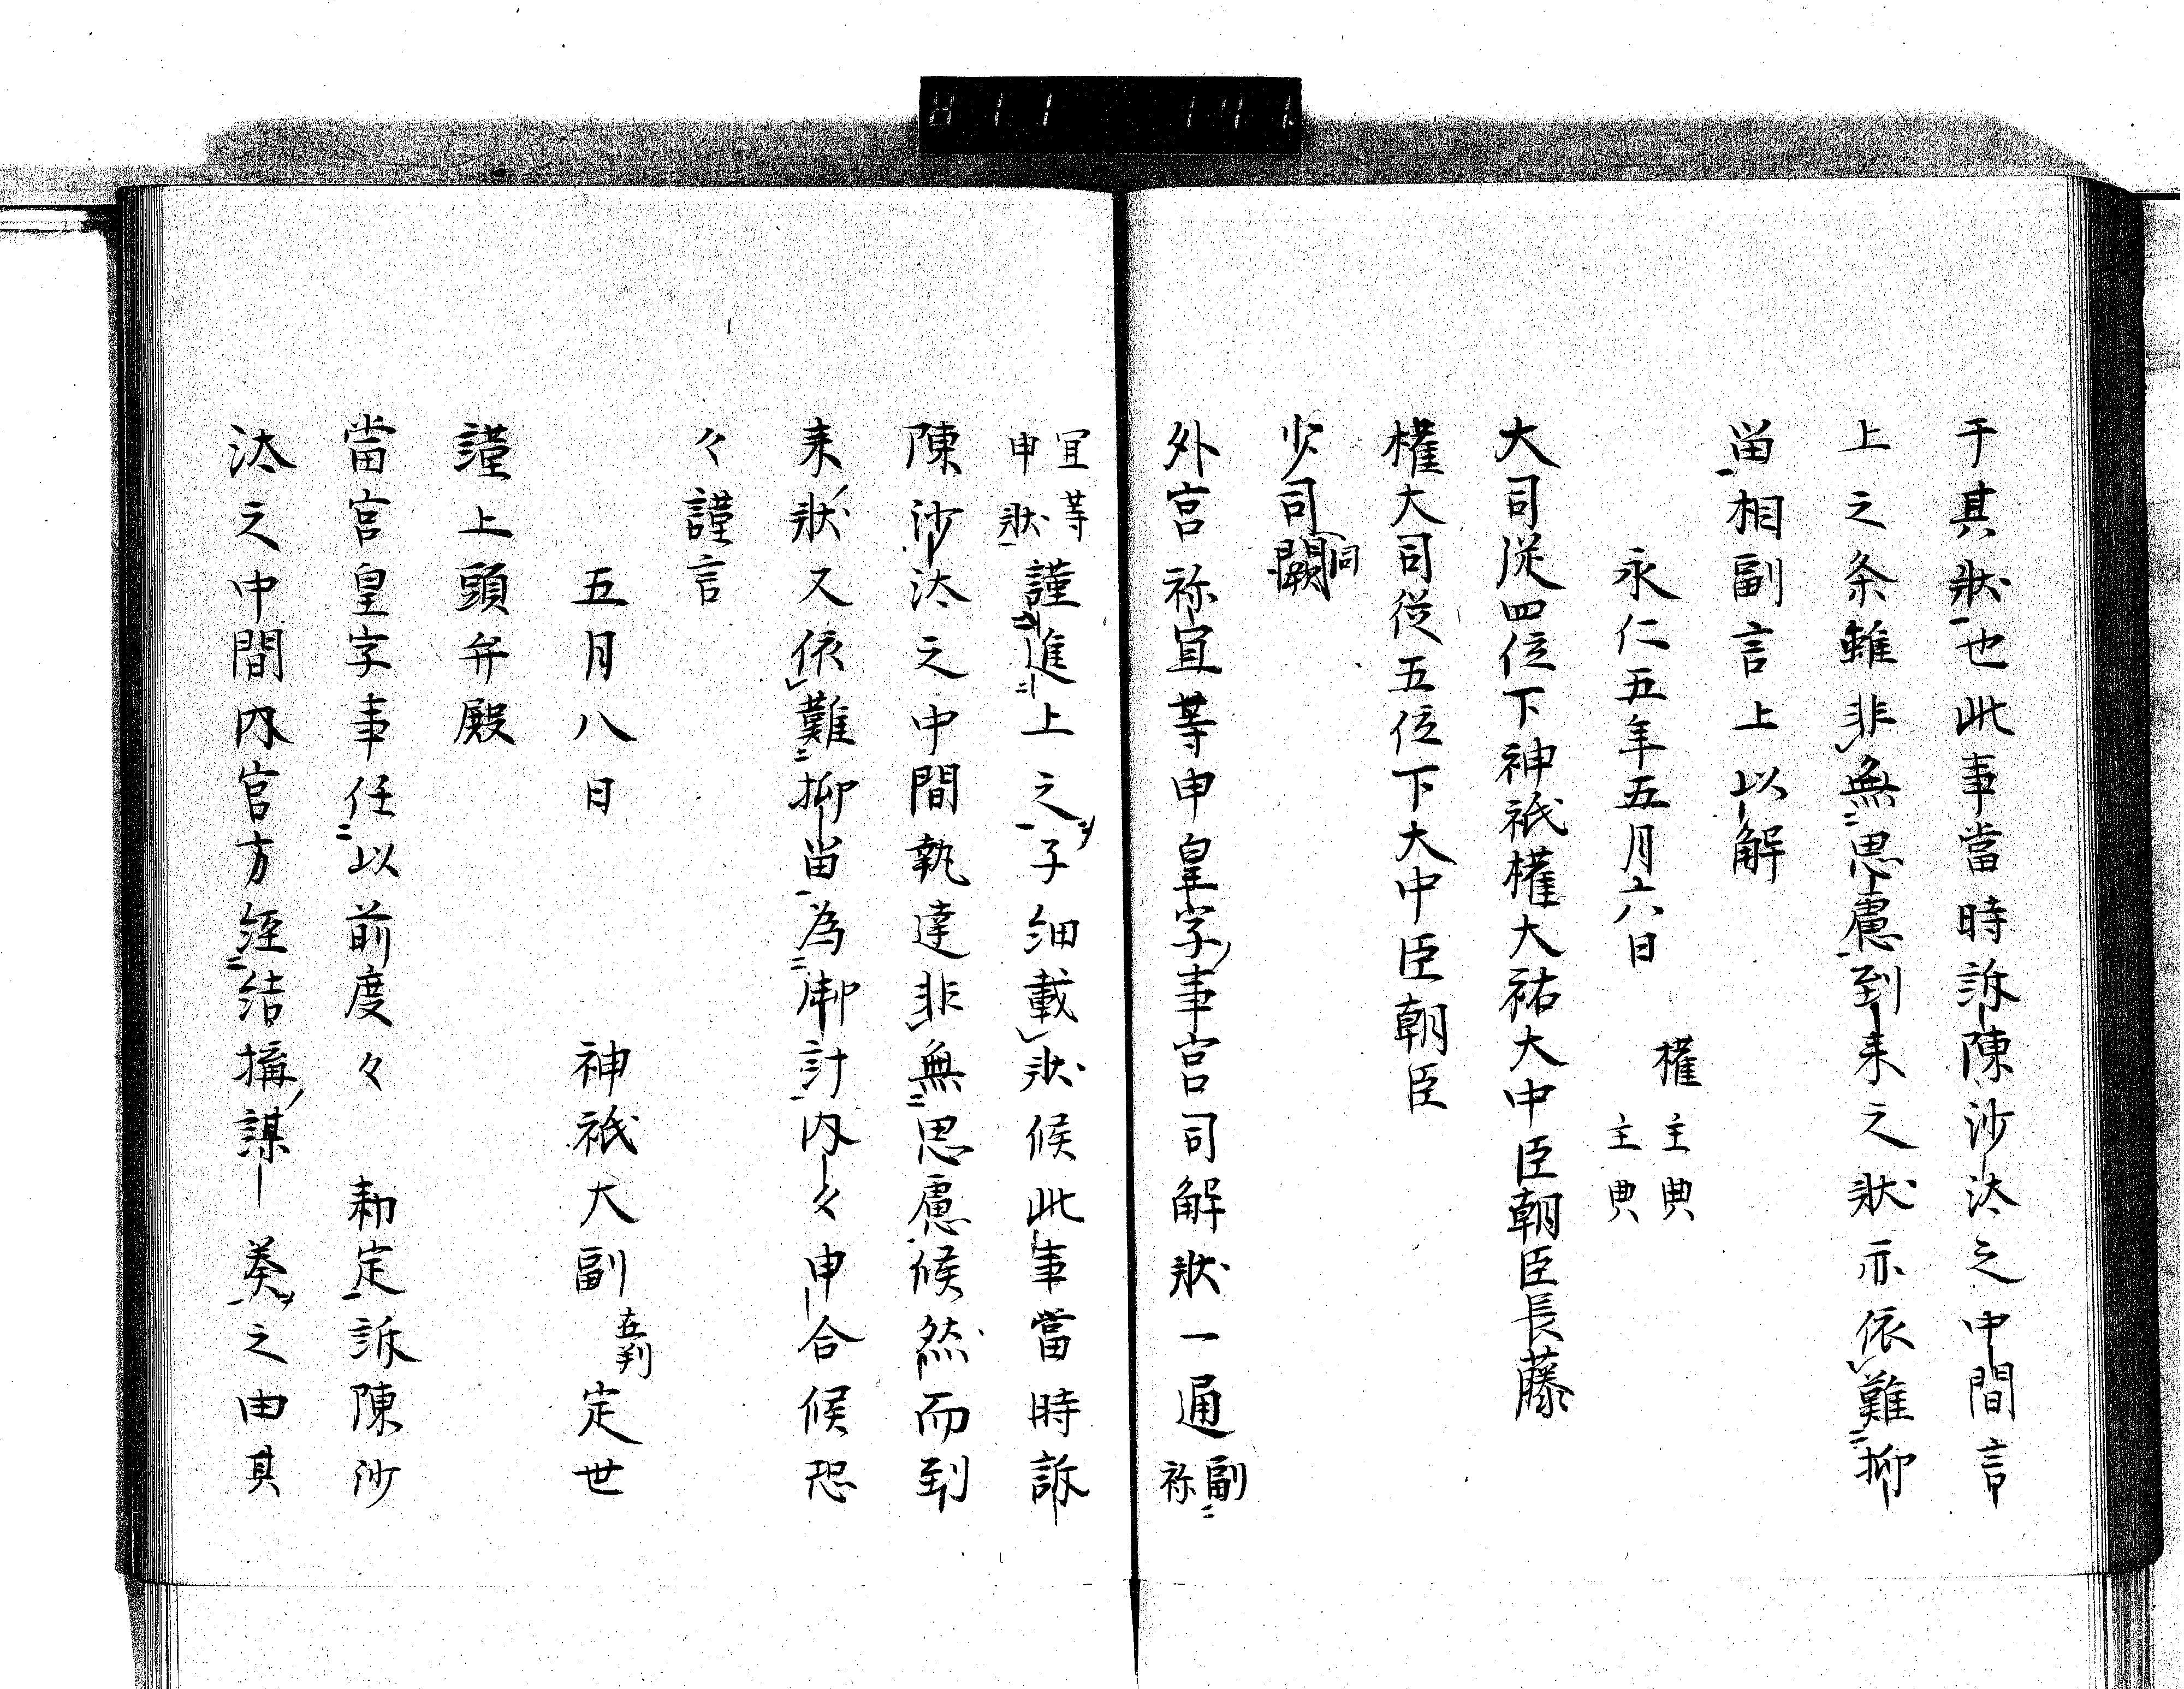 于其状也此事當時訴陳沙汰之中間言
上之条雖非無思慮到来之状亦依難抑
留相副言上以解
永仁五年五月六日 權主典
主典
大司従四位下神祇權大祐大中臣朝臣長藤
權大司従五位下大中臣朝臣
少司闕 同
外宮祢宜等申皇字事宮司解状一通 副祢
宜等申状 謹進上之子細載状候此事當時訴
陳沙汰之中間執達非無思慮候然而到
来状又依難抑留為御計内々申合候恐
々謹言
五月八日 神祇大副 在判 定世
謹上頭弁殿
當宮皇字事任以前度々 勅定訴陳沙
汰之中間内官方経結搆謀 奏之由其
H11 141.